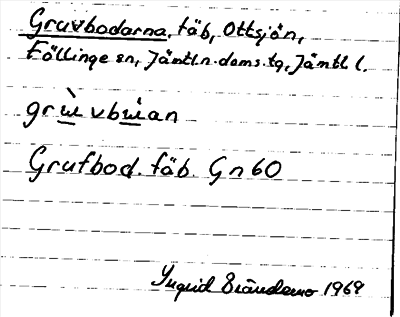 Gruvbodarna, fäb, Ottsjön,
Föllinge sn, Jämtl.n.doms.tg, Jämtl l.
grùvbùan
Grufbod. fäb. Gn 60
Yngrid 1969